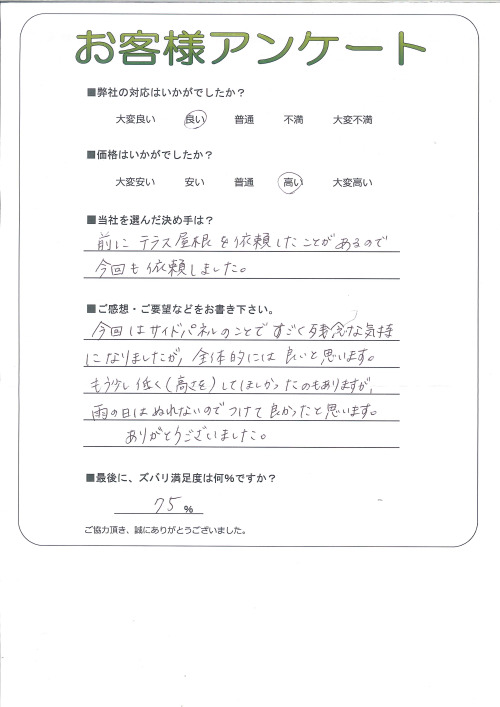 お客様アンケート
■弊社の対応はいかがでしたか？
大変良い 良い 普通 不満 大変不満
■価格はいかがでしたか？
大変安い 安い 普通 高い 大変高い
■当社を選んだ決め手は？
前に テラス屋根 を依頼したことがあるので
今回も依頼しました。
■ご感想・ご要望などをお書き下さい。
今回はサイドパネルのことですごく残念な気持
になりましたが、全体的には良いと思います。
もう少し低く（高さを）してほしかったのもありますが、
雨の日はぬれないのでつけて良かったと思います。
ありがとうございました。
■最後に、ズバリ満足度は何％ですか？
75 ％
ご協力頂き、誠にありがとうございました。